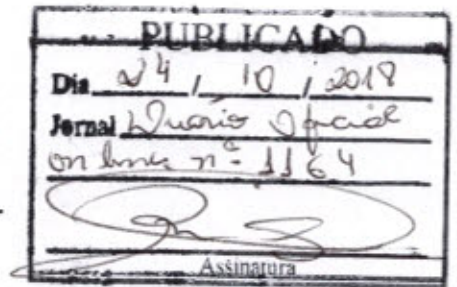 PUBLICADO
Dia 24 / 10 / 2018
Jornal Diário Oficial
on line nº 1164
Assinatura